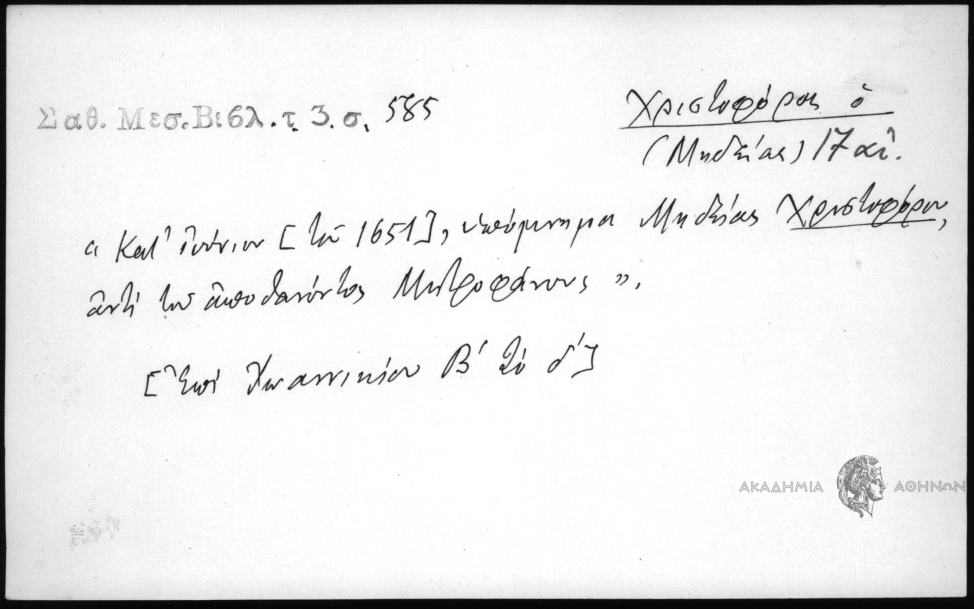 Σαθ. Μεσ. Βιβλ. τ. 3. σ. 585
Χριστοφόρος ὁ
(Μηδείας) 17 αἰ.
« Κατ' Ἰούνιον [τοῦ 1651], ὑπόμνημα Μηδείας Χριστοφόρου,
ἀντὶ τοῦ ἀποθανόντος Μητροφάνους ».
[Ἐπὶ Ἰωαννικίου Β' τὸ δ']
ΑΚΑΔΗΜΙΑ ΑΘΗΝΩΝ